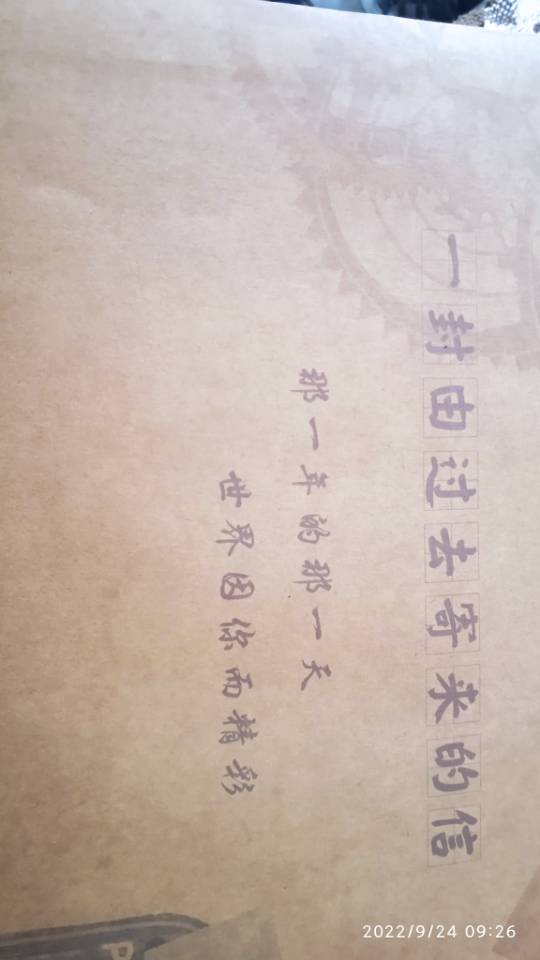 一封由过去寄来的信
那一年的那一天
世界因你而精彩
P
2022/9/24 09:26